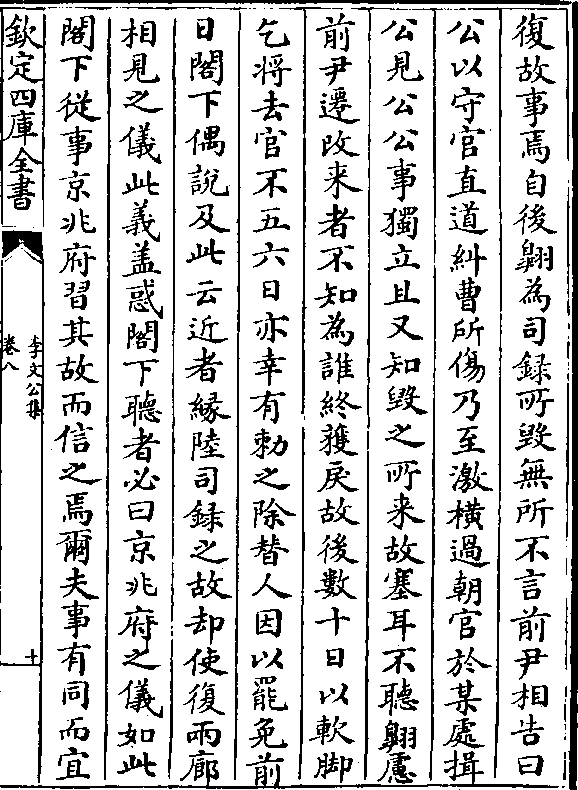 復故事焉自後翺為司録所毀無所不言前尹相告曰
公以守官直道糾曹所傷乃至激横過朝官於某處揖
公見公公事獨立且又知毀之所来故塞耳不聽翺慮
前尹遷改来者不知為誰終獲戾故後數十日以軟脚
乞將去官不五六日亦幸有勅之除替人因以罷免前
日閤下偶說及此云近者緣陸司録之故却使復兩廊
相見之儀此義盖惑閤下聽者必曰京兆府之儀如此
閤下從事京兆府習其故而信之焉爾夫事有同而宜
欽定四庫全書
李文公集
卷八
十